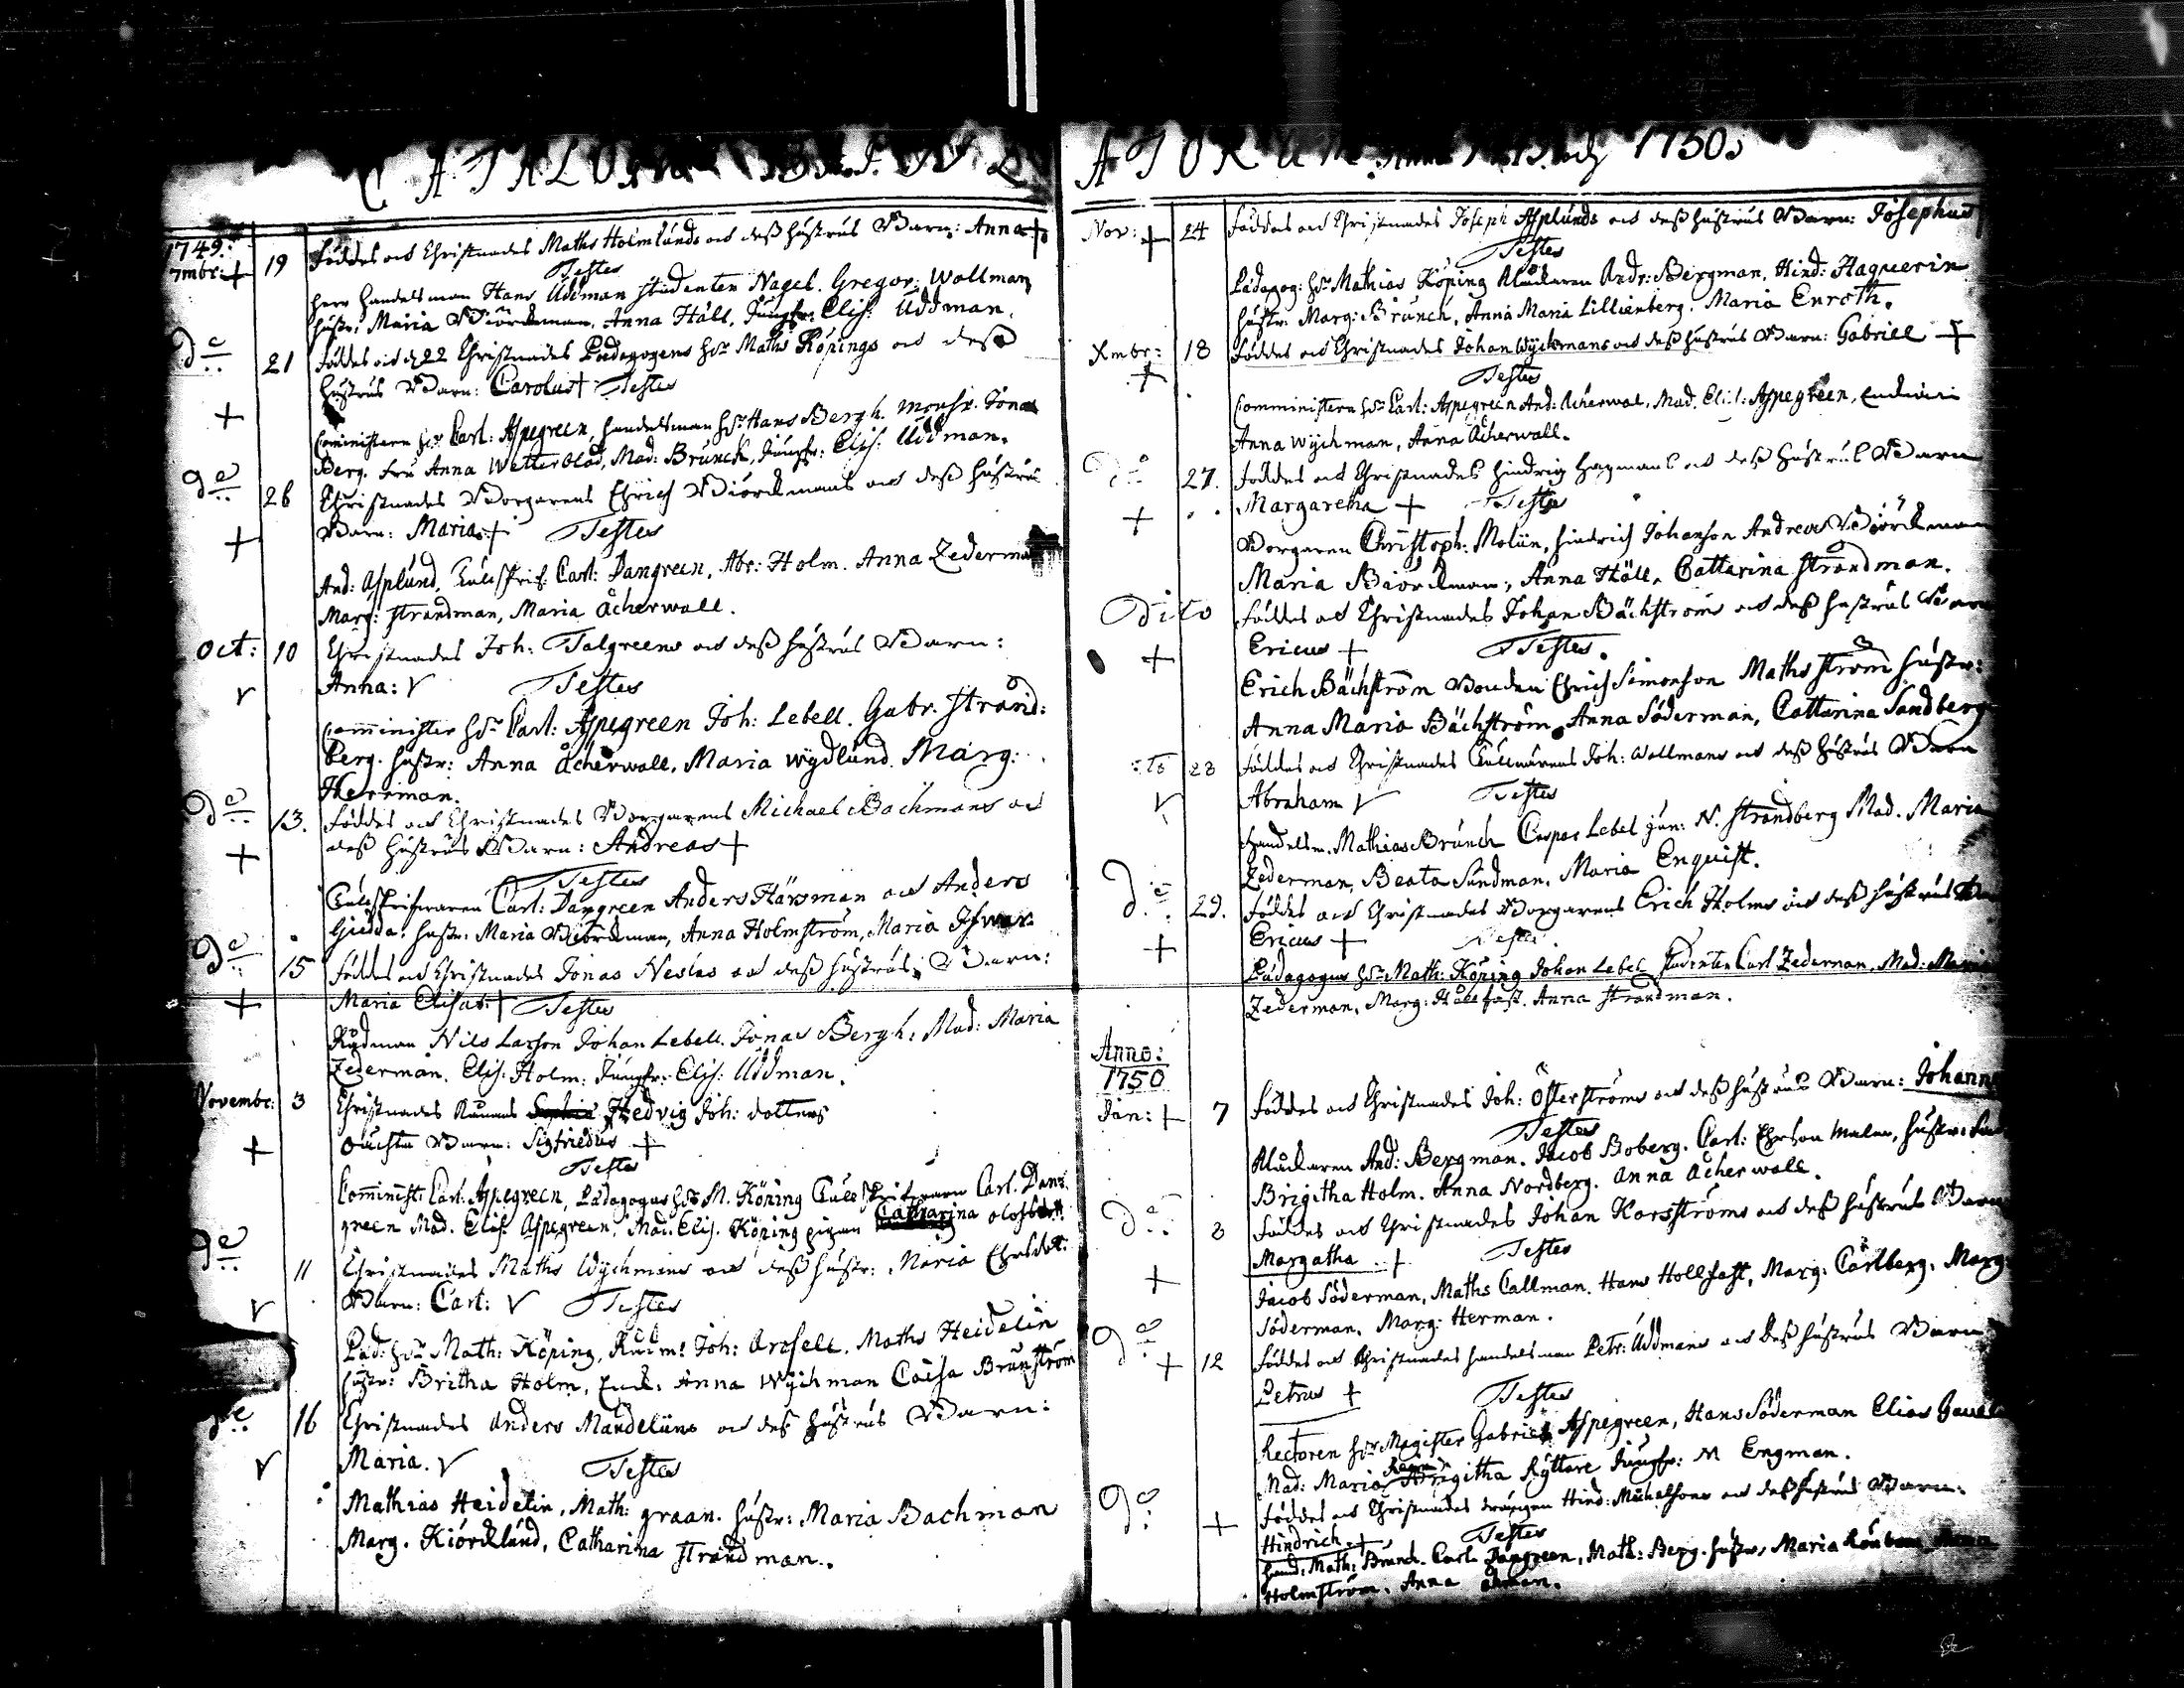 CATALOGUS BAPTIZ
1749.
7mbr: + 19 Föddes och Christnades Maths Holmlunds och dess hustrus Barn: Anna +
Testes
Herr Handelsman Hans Uddman studenten Nagel. Gregor: Wollman
hustr: Maria Biörckman, Anna Häll, Jungfr: Elis: Uddman.
De 21 Föddes och d 22 Christnades Pædagogens Hr Maths Köpings och dess
+ hustrus Barn: Carolus + Testes
Comministern Hr Carl: Aspegreen, handelsman Hr Hans Bergh. Monsr. Jonas
Berg. Fru Anna Wetterblad, Mad: Brunck, Jungfr: Elis: Uddman.
De 26 Christnades Borgarens Ehrich Biörckmans och dess hustrus
+ Barn: Maria + Testes
And: Asplund, Carl: Dangreen, Abr: Holm. Anna Zederman
Marg: Strandman, Maria Åcherwall.
Oct: 10 Christnades Joh: Talgreens och dess hustrus Barn:
V Anna: V Testes
Comminister Hr Carl: Aspegreen Joh: Lebell. Gabr. Strand:
berg. hustr: Anna Åcherwall, Maria Wydlund. Marg:
Herman.
De 13. Föddes och Christnades Borgarens Michael Bachmans och
+ dess hustrus Barn: Andreas +
Testes
Carl: Dangreen Anders Härsman och Anders
Giedda. hustr. Maria Biörckman, Anna Holmström, Maria
De 15 Föddes och Christnades Jonas Neslas och dess hustrus Barn:
+ Maria Elisab: + Testes
Rådman Nils Larson Johan Lebell. Jonas Bergh: Mad: Maria
Zederman. Elis. Holm. Jungfr: Elis: Uddman.
Novembr: 3 Christnades Hedvig Joh: dotters
+ oächta Barn: Sigfriedus +
Testes
Comminist: Carl: Aspegreen, Pædagogus Hr M. Köping Carl. Dan:
green Mad. Elis: Aspegreen, Mad: Elis. Köping pigan Catharina
De 11 Christnades Maths Wychmans och dess hustr: Maria
V Barn: Carl: V Testes
Pæd: Hr Math: Köping, Joh: Arosell. Maths Heidelin
hustr: Britha Holm, Anna Wychman Caisa Brunström
De 16 Christnades Anders Mandelins och dess hustrus Barn:
V Maria. V Testes
Mathias Heidelin, Math: graan. hustr: Maria Bachman
Marg. Kiörcklund, Catharina Strandman.
ATORUM Anno och 1750.
Nov: + 24 Föddes och Christnades Joseph Asplunds och dess hustrus Barn: Josephus
Testes
Pædagog: Hr Mathias Köping Klockaren Andr: Bergman, Hind: Haquerin
hustr. Marg: Brunck, Anna Maria Lillienberg. Maria Enroth.
Xmbr: 18 Föddes och Christnades Johan Wyckmans och dess hustrus Barn: Gabriel +
+ Testes
Comministern Hr Carl: Aspegreen And: Åcherwal, Mad. Elis: Aspegreen,
Anna Wychman, Anna Åcherwall.
De 27. Föddes och Christnades Hindrig Hagmans och dess hustrus Barn
+ Margareha + Testes
Borgaren Christoph: Molin, Hindrich Johanson Andreas Biörckman
Maria Biörckman, Anna Häll. Cattarina Strandman.
Dito Föddes och Christnades Johan Bächströms och dess hustrus Barn
+ Ericus + Testes.
Erich Bächström Bonden Ehrich Simonson Maths Ström hustr:
Anna Maria Bächström Anna Söderman, Cattarina Sandberg
28 Föddes och Christnades Joh: Wollmans och dess hustrus Barn
V Abraham V Testes
Handelsm. Mathias Brunck Caspar Lebel jun: N. Strandberg Mad. Maria
Zederman, Beata Sundman. Maria Enquist.
De 29. Föddes och Christnades Borgarens Erich Holms och dess hustrus Barn
+ Ericus + Testes
Pædagogus Hr Math: Köping Johan Lebel Studenten Carl Zederman. Mad: Maria
Zederman, Marg: Hållfast. Anna Strandman.
Anno:
1750
Jan: + 7 Föddes och Christnades Joh: Österströms och dess hustrus Barn: Johann
Testes
Klockaren And: Bergman. Jacob Boberg. Carl: Malm, hustr:
Brigitha Holm. Anna Nordberg. Anna Åcherwall.
De 8 Föddes och Christnades Johan Korsströms och dess hustrus Barn
+ Margatha + Testes
Jacob Söderman, Maths Callman. Hans Hollfast, Marg: Carlberg. Marg
Söderman. Marg: Herman.
De + 12 Föddes och Christnades handelsman Petr: Uddmans och dess hustrus Barn
Petrus + Testes
Rectoren Hr Magister Gabriel Aspegreen, Hans Söderman Elias
Mad: Maria Brigitha Ryttare Jungfr: M Engman.
De + Föddes och Christnades drängen Hind: Michelsons och dess hustrus Barn.
Hindrich + Testes
Hand: Math: Brunck. Carl Dangreen, Math: Berg. hustr, Maria
Holmström. Anna